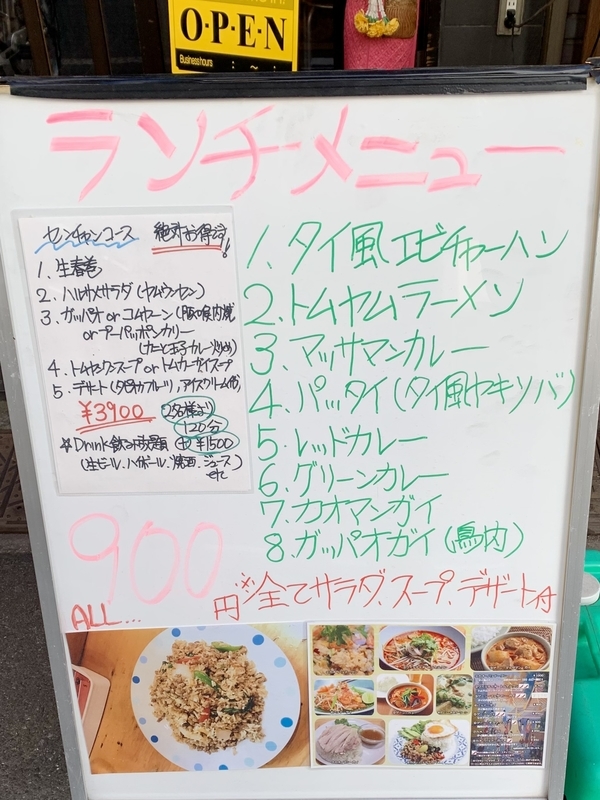 O・P・E・N
Business hours
ランチメニュー
センチャンコース 絶対お得です!
1. 生春巻
2. ハルサメサラダ(ヤムウンセン)
3. ガッパオ or コムヤーン(豚喉肉焼
or プーパッポンカリー
(カニと玉子カレー炒め)
4. トムヤンクンスープ or トムカーガイスープ
5. デザート(タピオカフルーツ)、アイスクリーム他)
¥3900
2名様より
120分
☆Drink飲み放題 ⊕¥1500
(生ビール、ハイボール、焼酒、ジュース)
etc
1. タイ風エビチャーハン
2. トムヤムラーメン
3. マッサマンカレー
4. パッタイ(タイ風ヤキソバ)
5. レッドカレー
6. グリーンカレー
7. カオマンガイ
8. ガッパオガイ(鳥肉)
ALL... 900円
※全てサラダ、スープ、デザート付